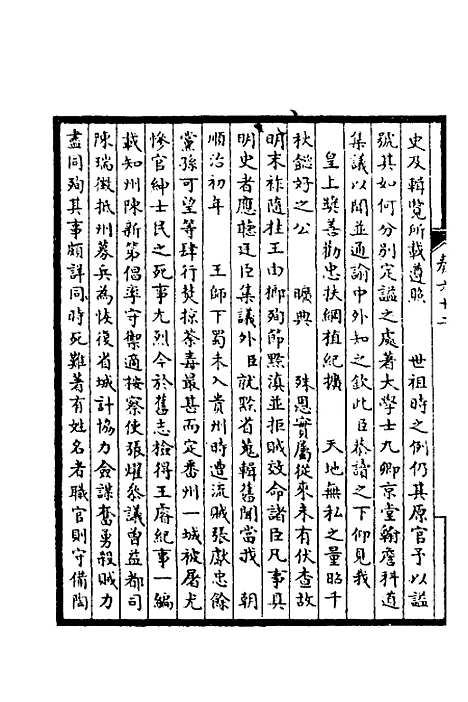 史及輯覽所載遵照　世祖時之例仍其原官予以諡
號其如何分别定諡之處著大學士九卿京堂翰詹科道
集議以聞並通諭中外知之欽此臣恭讀之下仰見我
皇上獎善勸忠扶綱植紀擴　天地無私之量昭千
秋懿好之公　曠典　殊恩實屬從來未有伏查故
明末祚隨桂王由榔殉節黔滇並拒賊效命諸臣凡事具
明史者應聽廷臣集議外臣就黔省蒐輯舊聞當我　朝
順治初年　王師下蜀未入貴州時遭流賊張獻忠餘
黨孫可望等肆行焚掠荼毒最甚而定番州一城被屠尤
慘官紳士民之死事尤烈今於舊志檢得王睿紀事一編
載知州陳新第倡率守禦適按察使張耀叅議曾益都司
陳瑞徵抵州募兵為恢復省城計協力僉謀奮勇殺賊力
盡同殉其事頗詳同時死難著有姓名者職官則守備陶
卷六十二